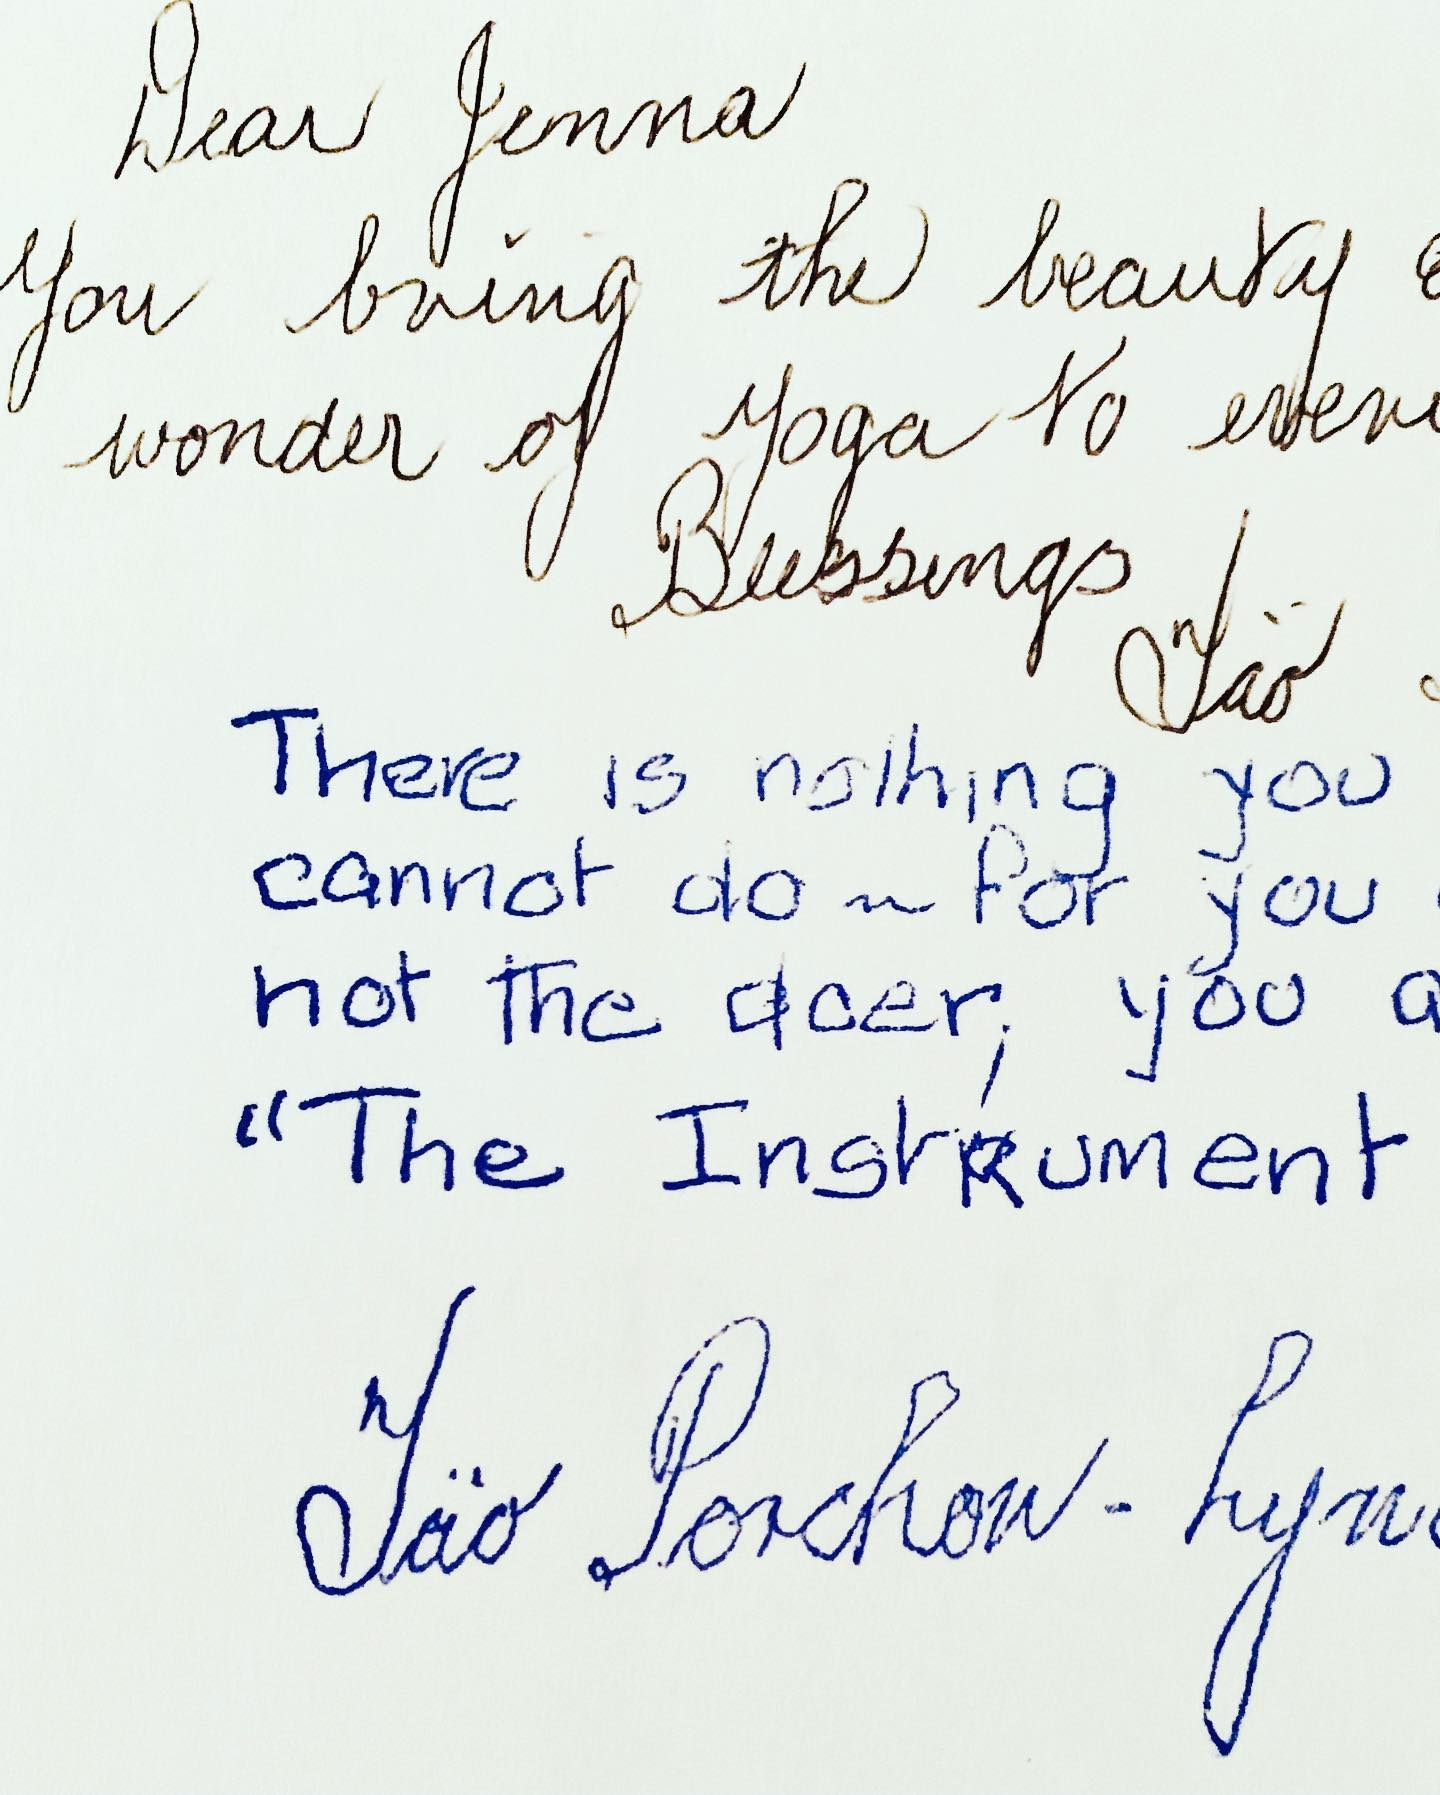 Dear Jenna
You bring the beauty
wonder of Yoga to
Blessings
Täo
There is nothing you
cannot do ~ for you
not the doer, you
"The Instrument
Täo Porchon-Lyn